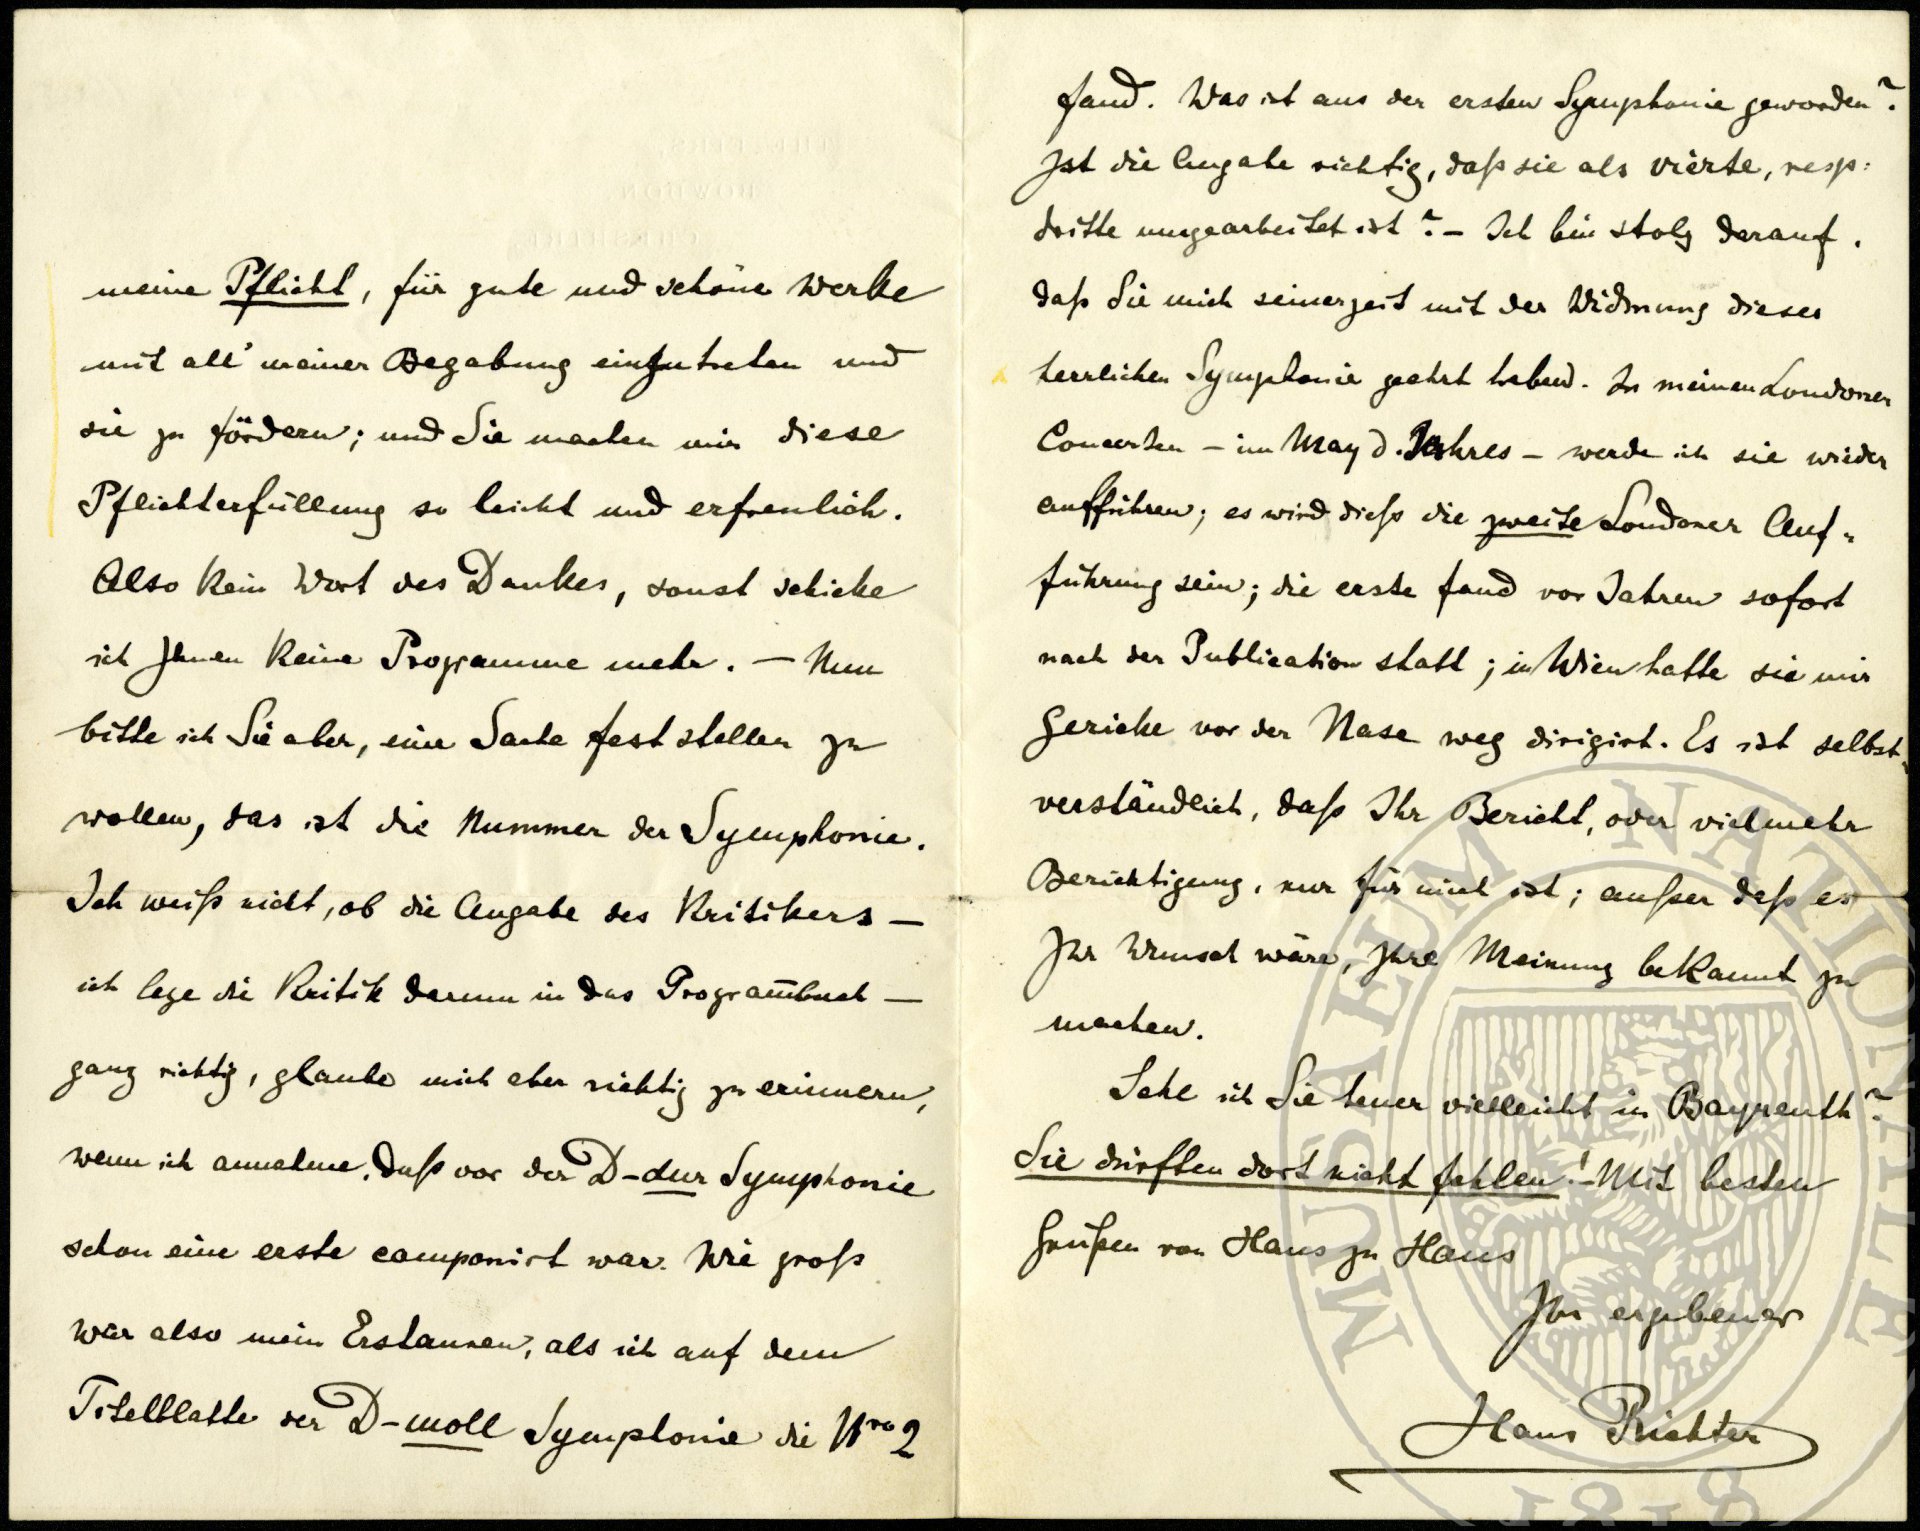 meine Pflicht, für gute und schöne Werke
mit all' meiner Begabung einzutreten und
sie zu fördern; und Sie machen mir diese
Pflichterfüllung so leicht und erfreulich.
Also kein Wort des Dankes, sonst schicke
ich Ihnen keine Programme mehr. — Nun
bitte ich Sie aber, eine Sache feststellen zu
wollen, das ist die Nummer der Symphonie.
Ich weiß nicht, ob die Angabe des Kritikers —
ich lege die Kritik darum in das Programmbuch —
ganz richtig, glaube mich aber richtig zu erinnern,
wenn ich annehme, daß vor der D-dur Symphonie
schon eine erste componirt war. Wie groß
war also mein Erstaunen, als ich auf dem
Titelblatte der D-moll Symphonie die Nro 2
fand. Was ist aus der ersten Symphonie geworden?
Ist die Angabe richtig, daß sie als vierte, resp:
dritte umgearbeitet ist? – Ich bin stolz darauf,
daß Sie mich seinerzeit mit der Widmung dieser
herrlichen Symphonie geehrt haben. In meinen Londoner
Concerten – im May d. Jahres – werde ich sie wieder
aufführen; es wird dieß die zweite Londoner Auf-
führung sein; die erste fand vor Jahren sofort
nach der Publication statt; in Wien hatte sie mir
Gericke vor der Nase weg dirigirt. Es ist selbst-
verständlich, daß Ihr Bericht, oder vielmehr
Berichtigung, nur für mich ist; außer daß es
Ihr Wunsch wäre, Ihre Meinung bekannt zu
machen.
Sehe ich Sie heuer vielleicht in Bayreuth?
Sie dürften dort nicht fehlen! – Mit besten
Grüßen von Haus zu Haus
Ihr ergebener
Hans Richter
MUSAEUM NATIONALE
1818